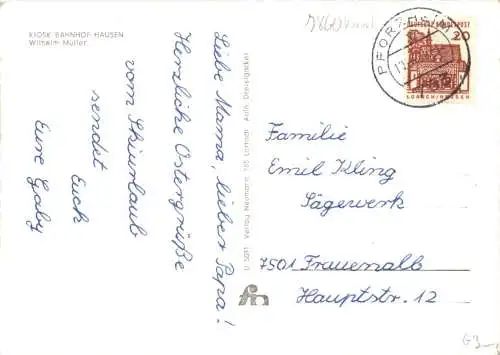 KIOSK BAHNHOF HAUSEN
Wilhelm Müller
Liebe Mama, lieber Papa!
Herzliche Ostergrüße
vom Skiurlaub
sendet
Euch
Eure Gaby
Verlag Neumann, 785 Lörrach
fn
PFORZHEIM
DEUTSCHE BUNDESPOST
20
LORSCH/HESSEN
Familie
Emil Kling
Sägewerk
7501 Frauenalb
Hauptstr. 12